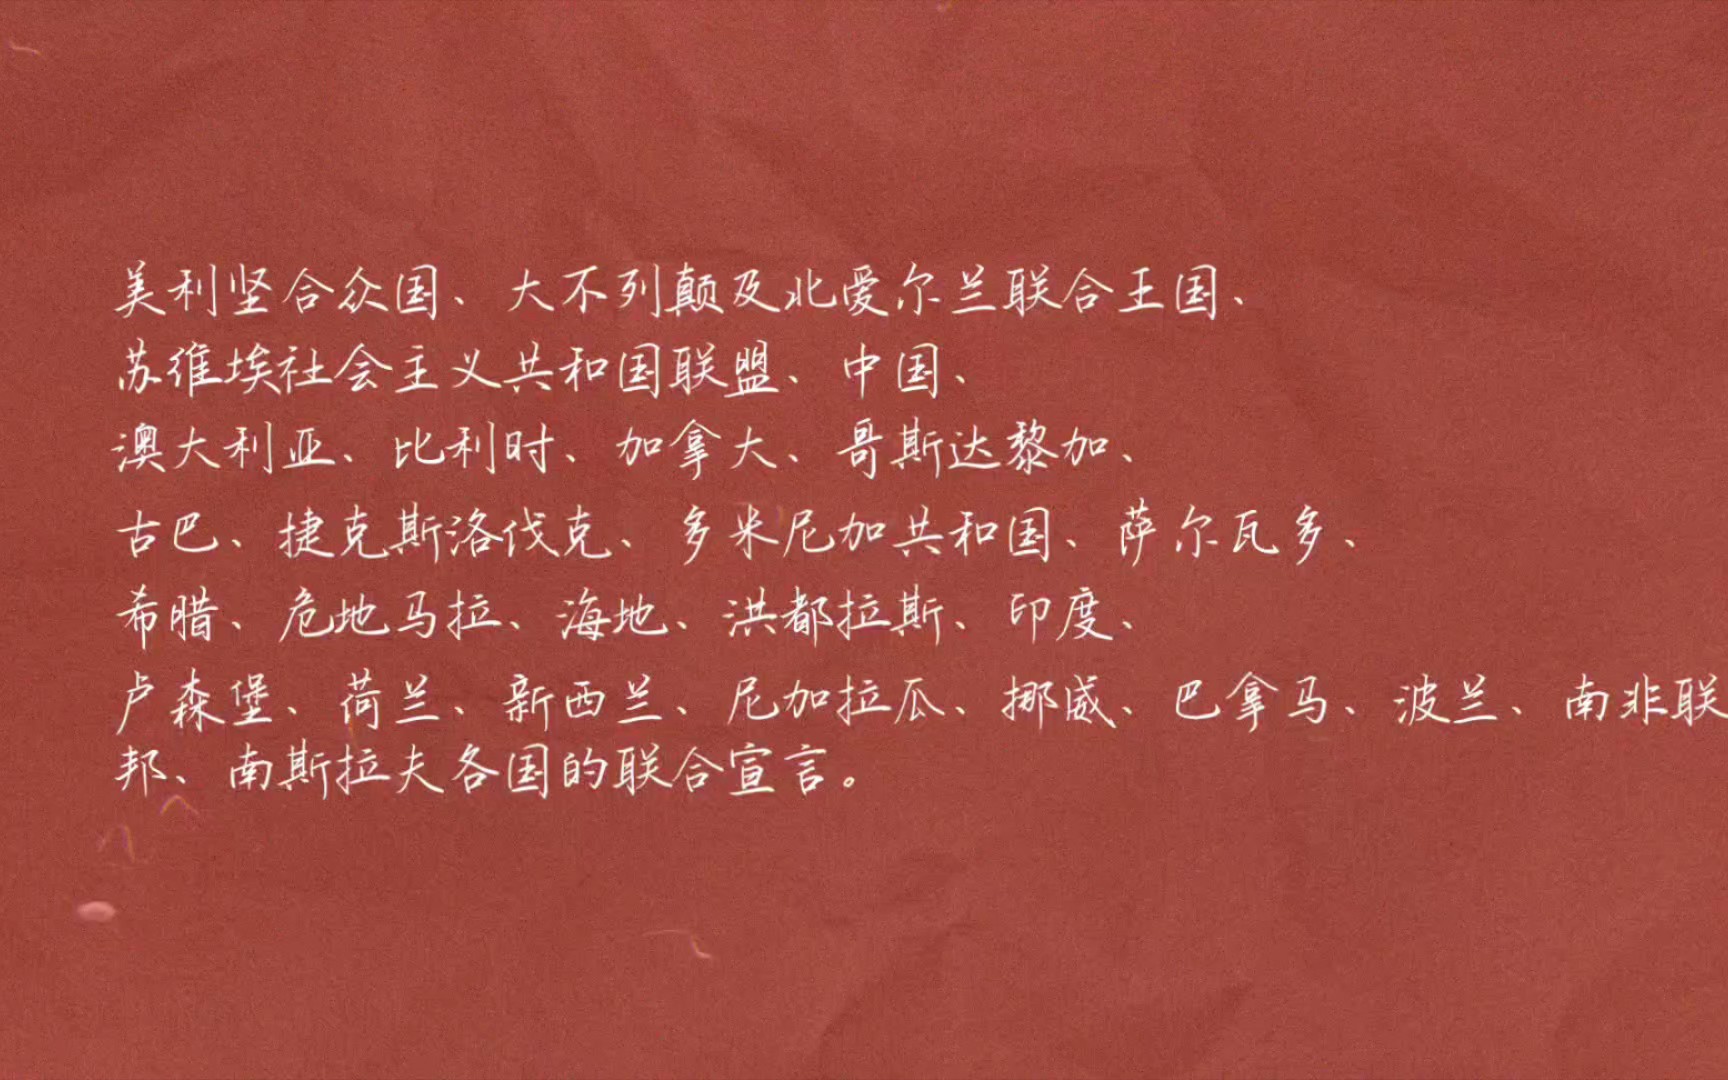 美利坚合众国、大不列颠及北爱尔兰联合王国、
苏维埃社会主义共和国联盟、中国、
澳大利亚、比利时、加拿大、哥斯达黎加、
古巴、捷克斯洛伐克、多米尼加共和国、萨尔瓦多、
希腊、危地马拉、海地、洪都拉斯、印度、
卢森堡、荷兰、新西兰、尼加拉瓜、挪威、巴拿马、波兰、南非联
邦、南斯拉夫各国的联合宣言。